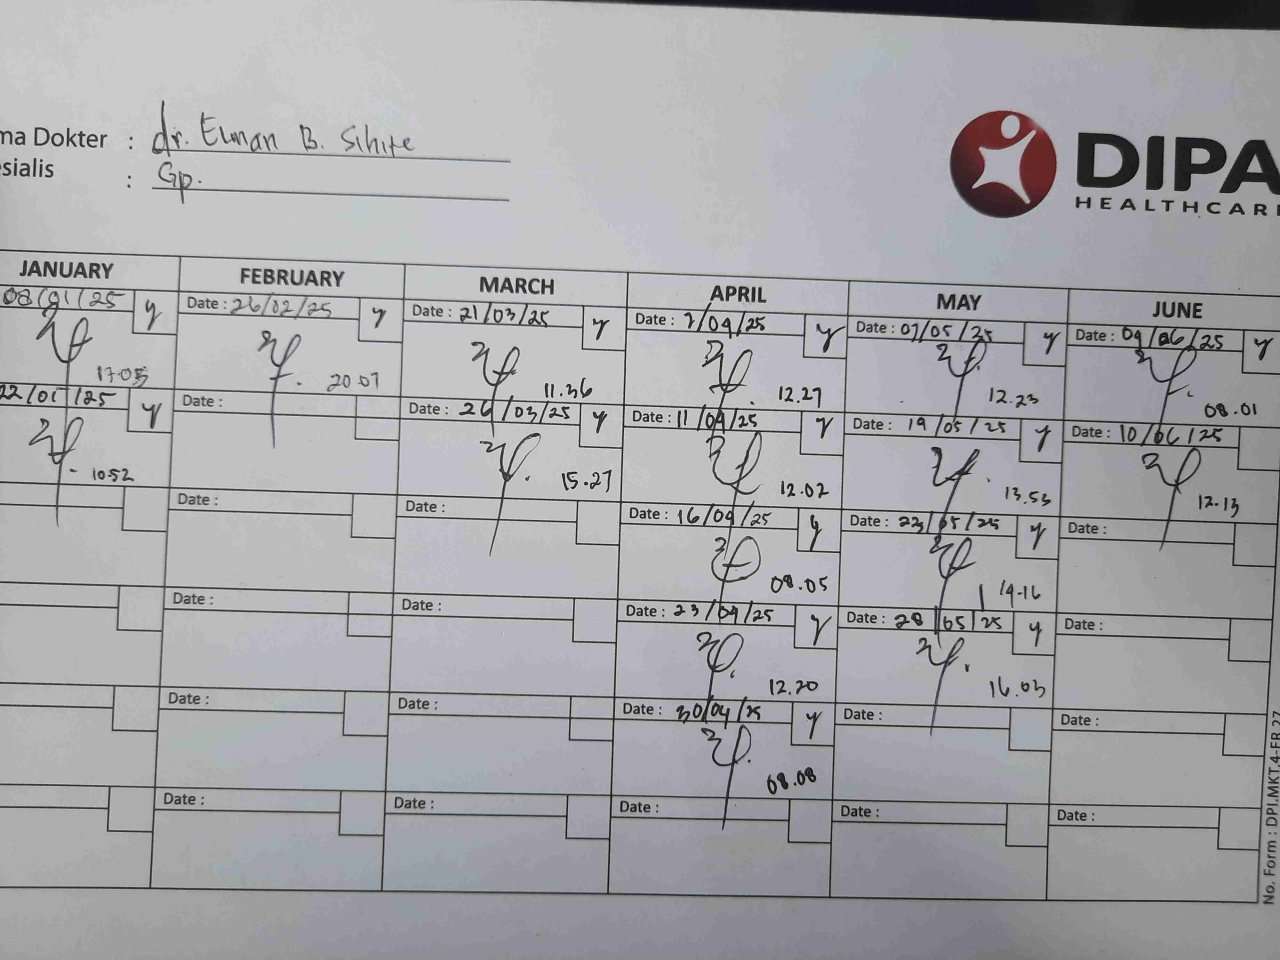 ma Dokter : dr. Elman B. Sihite
esialis : Gp.
DIPA
HEALTHCAR
JANUARY FEBRUARY MARCH APRIL MAY JUNE
08/01/25 y Date : 26/02/25 y Date : 21/03/25 y Date : 7/04/25 y Date : 07/05/25 y Date : 04/06/25 y
17.05 20.07 11.36 12.27 12.23 08.01
22/01/25 y Date : Date : 26/03/25 y Date : 11/04/25 y Date : 19/05/25 y Date : 10/06/25
10.52 15.27 12.02 13.53 12.13
Date : Date : Date : 16/04/25 y Date : 22/05/25 y Date :
08.05 14.16
Date : Date : Date : 23/04/25 y Date : 28/05/25 y Date :
12.20 16.03
Date : Date : Date : 30/04/25 y Date : Date :
08.08
Date : Date : Date : Date : Date :
No. Form : DPI.MKT.4-FR.27